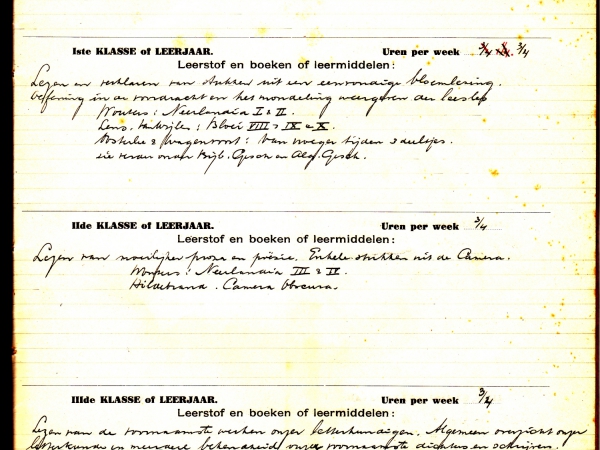 Iste KLASSE of LEERJAAR. Uren per week 3/4 3/4
Leerstof en boeken of leermiddelen:
Lezen en verklaren van stukken uit een eenvoudige bloemlezing.
Oefening in de voordracht en het mondeling weergeven der leesstof
Wouters: Neerlandia I & II.
Leno. : Bloei VIII, IX & X.
& Wagenvoort: Van vroeger tijden 3 deeltjes.
zie verder onder Bijb. Gesch en Alg. Gesch.
IIde KLASSE of LEERJAAR. Uren per week 3/4
Leerstof en boeken of leermiddelen:
Lezen van moeilijker proza en poëzie. Enkele stukken uit de Camera.
Wouters: Neerlandia III & IV.
Hildebrand. Camera Obscura.
IIIde KLASSE of LEERJAAR. Uren per week 3/4
Leerstof en boeken of leermiddelen:
Lezen van de voornaamste werken onzer letterkundigen. Algemeen overzicht onzer
letterkunde en meerdere bekendheid onzer voornaamste dichters en schrijvers.